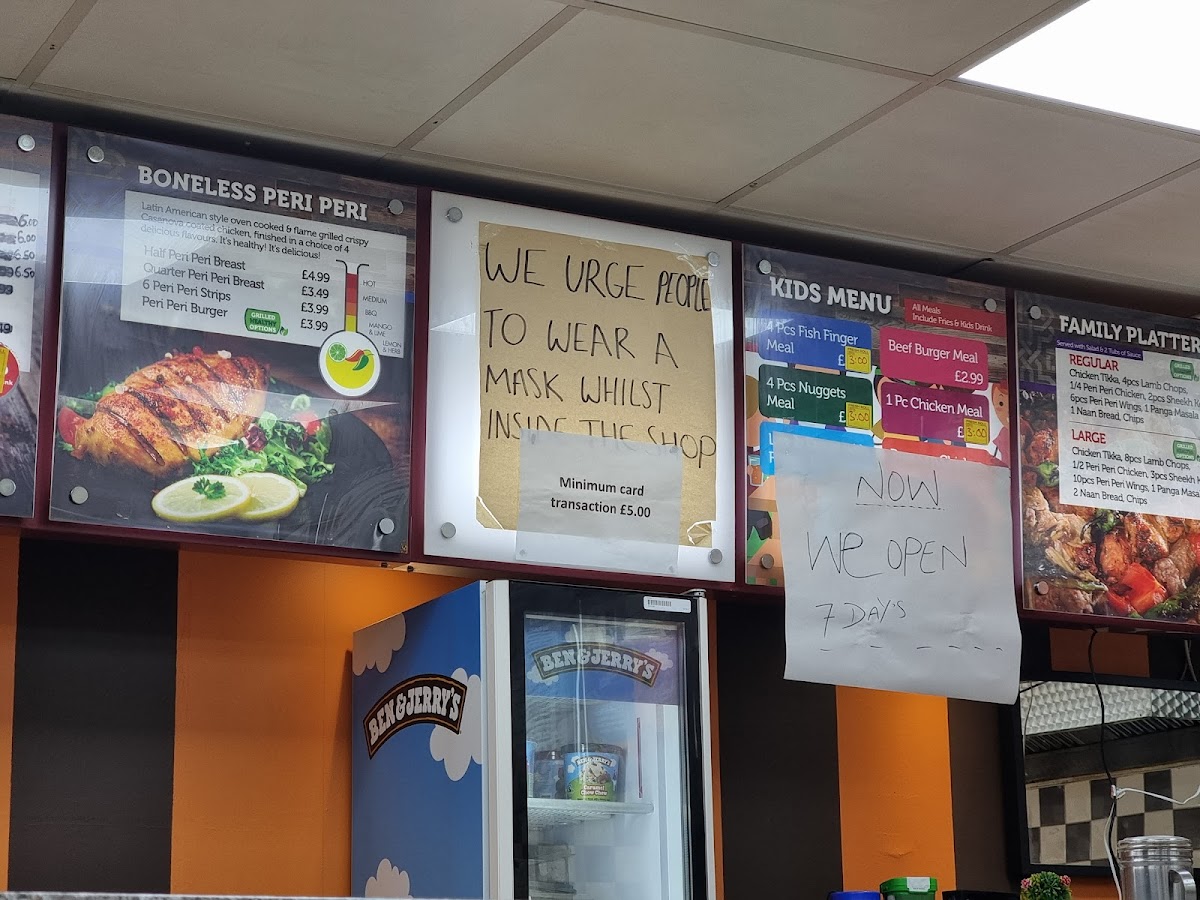 6.00
6.50
BONELESS PERI PERI
Latin American style oven cooked & flame grilled crispy
Casanova coated chicken, finished in a choice of 4
delicious flavours. It's healthy! It's delicious!
Half Peri Peri Breast £4.99
Quarter Peri Peri Breast £3.49
6 Peri Peri Strips £3.99
Peri Peri Burger £3.99
GRILLED
OPTIONS
HOT
MEDIUM
BBQ
MANGO
& LIME
LEMON
& HERB
WE URGE PEOPLE
TO WEAR A
MASK WHILST
INSIDE THE SHOP
Minimum card
transaction £5.00
KIDS MENU
All Meals
Include Fries & Kids Drink
4 Pcs Fish Finger
Meal £3:00
Beef Burger Meal
£2.99
4 Pcs Nuggets
Meal £3:00
1 Pc Chicken Meal
£3:00
NOW
WE OPEN
7 DAY'S
FAMILY PLATTER
Served with Salad & 2 Tubs of Sauce
REGULAR
Chicken Tikka, 4pcs Lamb Chops,
1/4 Peri Peri Chicken, 2pcs Sheekh
6pcs Peri Peri Wings, 1 Panga Masala
1 Naan Bread, Chips
GRILLED
LARGE
Chicken Tikka, 8pcs Lamb Chops,
1/2 Peri Peri Chicken, 3pcs Sheekh
10pcs Peri Peri Wings, 1 Panga
2 Naan Bread, Chips
GRILLED
BEN & JERRY'S
BEN & JERRY'S
BEN & JERRY'S
Caramel
Chew Chew